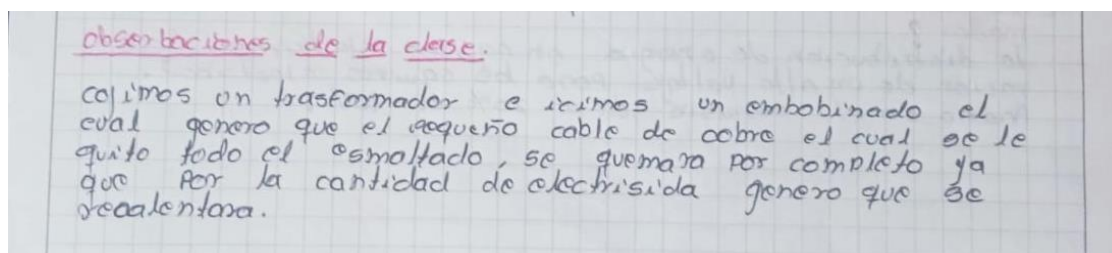 obserbaciones de la clase.
cojimos un trasformador e icimos un embobinado el
cual genero que el pequeño cable de cobre el cual se le
quito todo el esmaltado, se quemara por completo ya
que por la cantidad de electrisida genero que se
recalentara.